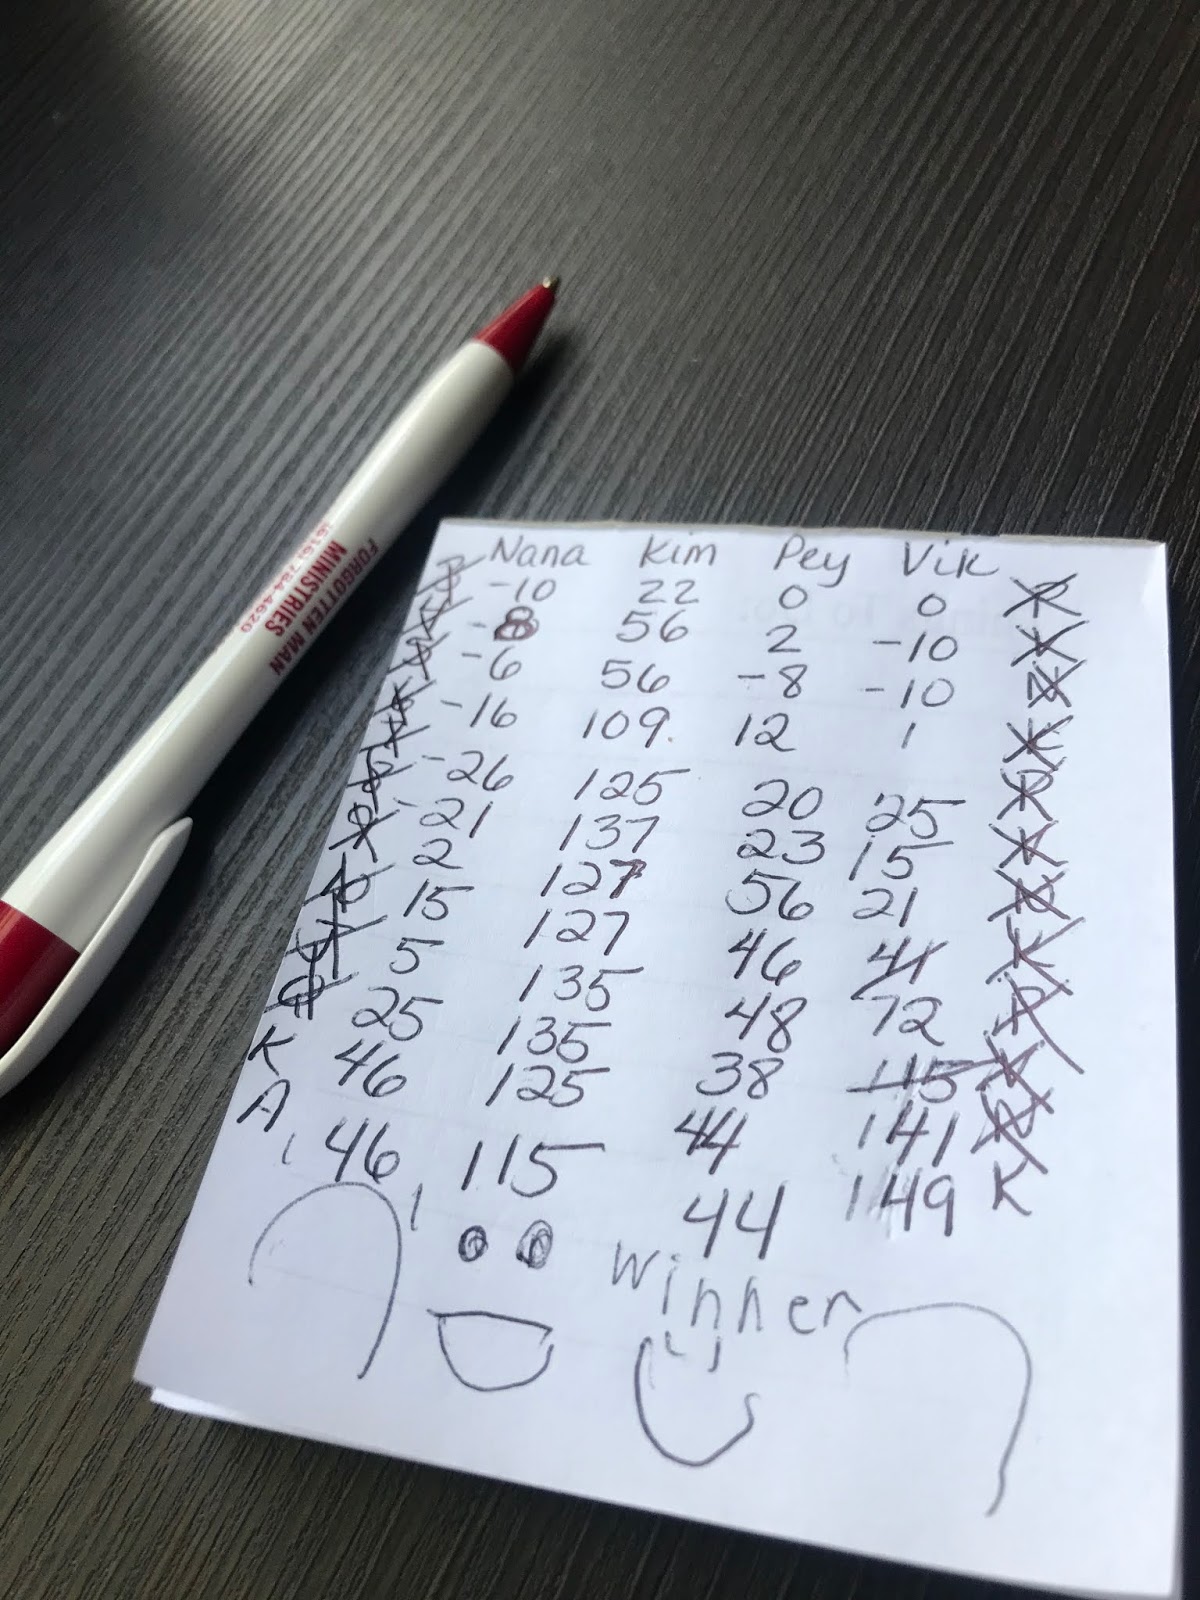 FORGOTTEN MAN
MINISTRIES
(616) 784-4620
Nana Kim Pey Vik
-10 22 0 0
-8 56 2 -10
-6 56 -8 -10
-16 109. 12 1
-26 125 20 25
-21 137 23 15
2 127 56 21
15 127 46 41
5 135 48 72
25 135 38 115
K 46 125 44 141
A 46 115 44 149 K
Winner